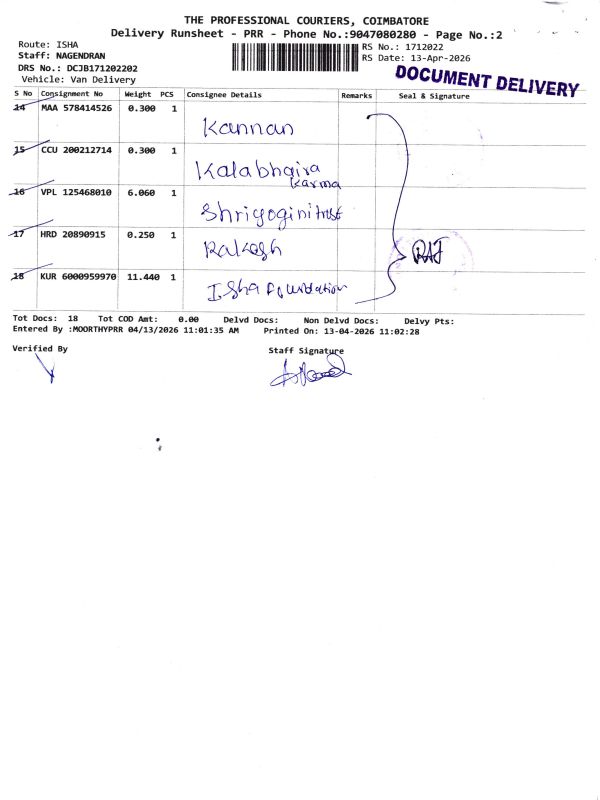 THE PROFESSIONAL COURIERS, COIMBATORE
Delivery Runsheet - PRR - Phone No.:9047080280 - Page No.:2
Route: ISHA
Staff: NAGENDRAN
DRS No.: DCJB171202202
Vehicle: Van Delivery
RS No.: 1712022
RS Date: 13-Apr-2026
DOCUMENT DELIVERY
S No Consignment No Weight PCS Consignee Details Remarks Seal & Signature
14 MAA 578414526 0.300 1 Kannan
15 CCU 200212714 0.300 1 Kalabhaira
Karma
16 VPL 125468010 6.060 1 Shriyogini trust
17 HRD 20890915 0.250 1 Rakesh
RAJ
18 KUR 6000959970 11.440 1 Isha Foundation
Tot Docs: 18 Tot COD Amt: 0.00 Delvd Docs: Non Delvd Docs: Delvy Pts:
Entered By :MOORTHYPRR 04/13/2026 11:01:35 AM Printed On: 13-04-2026 11:02:28
Verified By Staff Signature